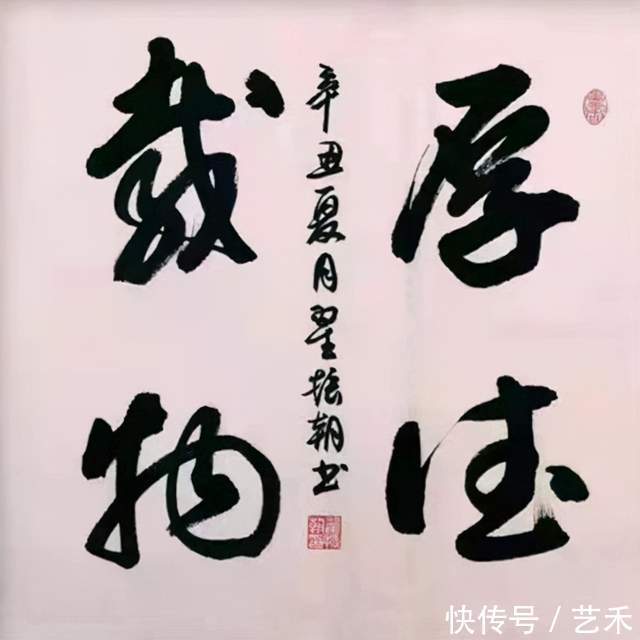 厚德
载物
辛丑夏月翟振朝书
快传号 / 艺禾